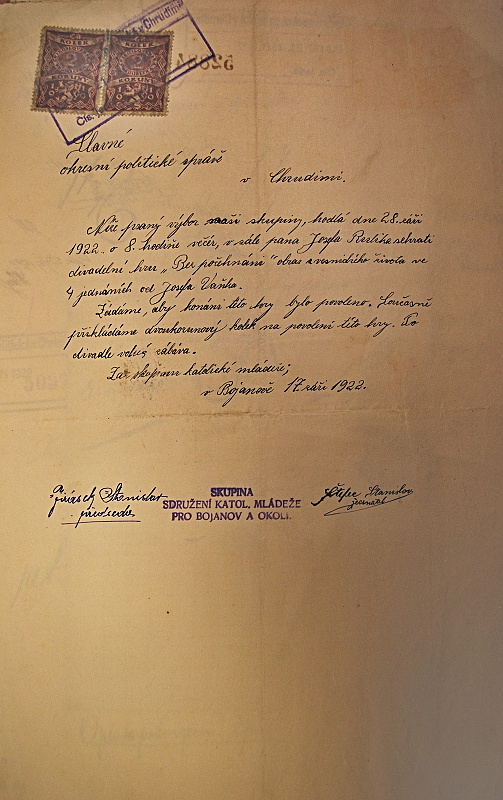 v Chrudimi
52384
KOLEK KOLEK
2 2
KORUNY KORUNY
Čís.
Slavné
okresní politické správě
v Chrudimi.
Níže psaný výbor naší skupiny, hodlá dne 28. září
1922 o 8. hodině večer, v sále pana Josefa sehrati
divadelní hru „Bez požehnání" obraz z vesnického života ve
4 jednáních od Josefa Vaňka.
Žádáme, aby konání této hry bylo povoleno. Současně
přikládáme dvoukorunový kolek na povolení této hry. Po
divadle volná zábava.
Za skupinu katolické mládeže;
v Bojanově 17 září 1922.
Jirásek Stanislav
předseda
SKUPINA
SDRUŽENÍ KATOL. MLÁDEŽE
PRO BOJANOV A OKOLÍ.
Stanislav
jednatel